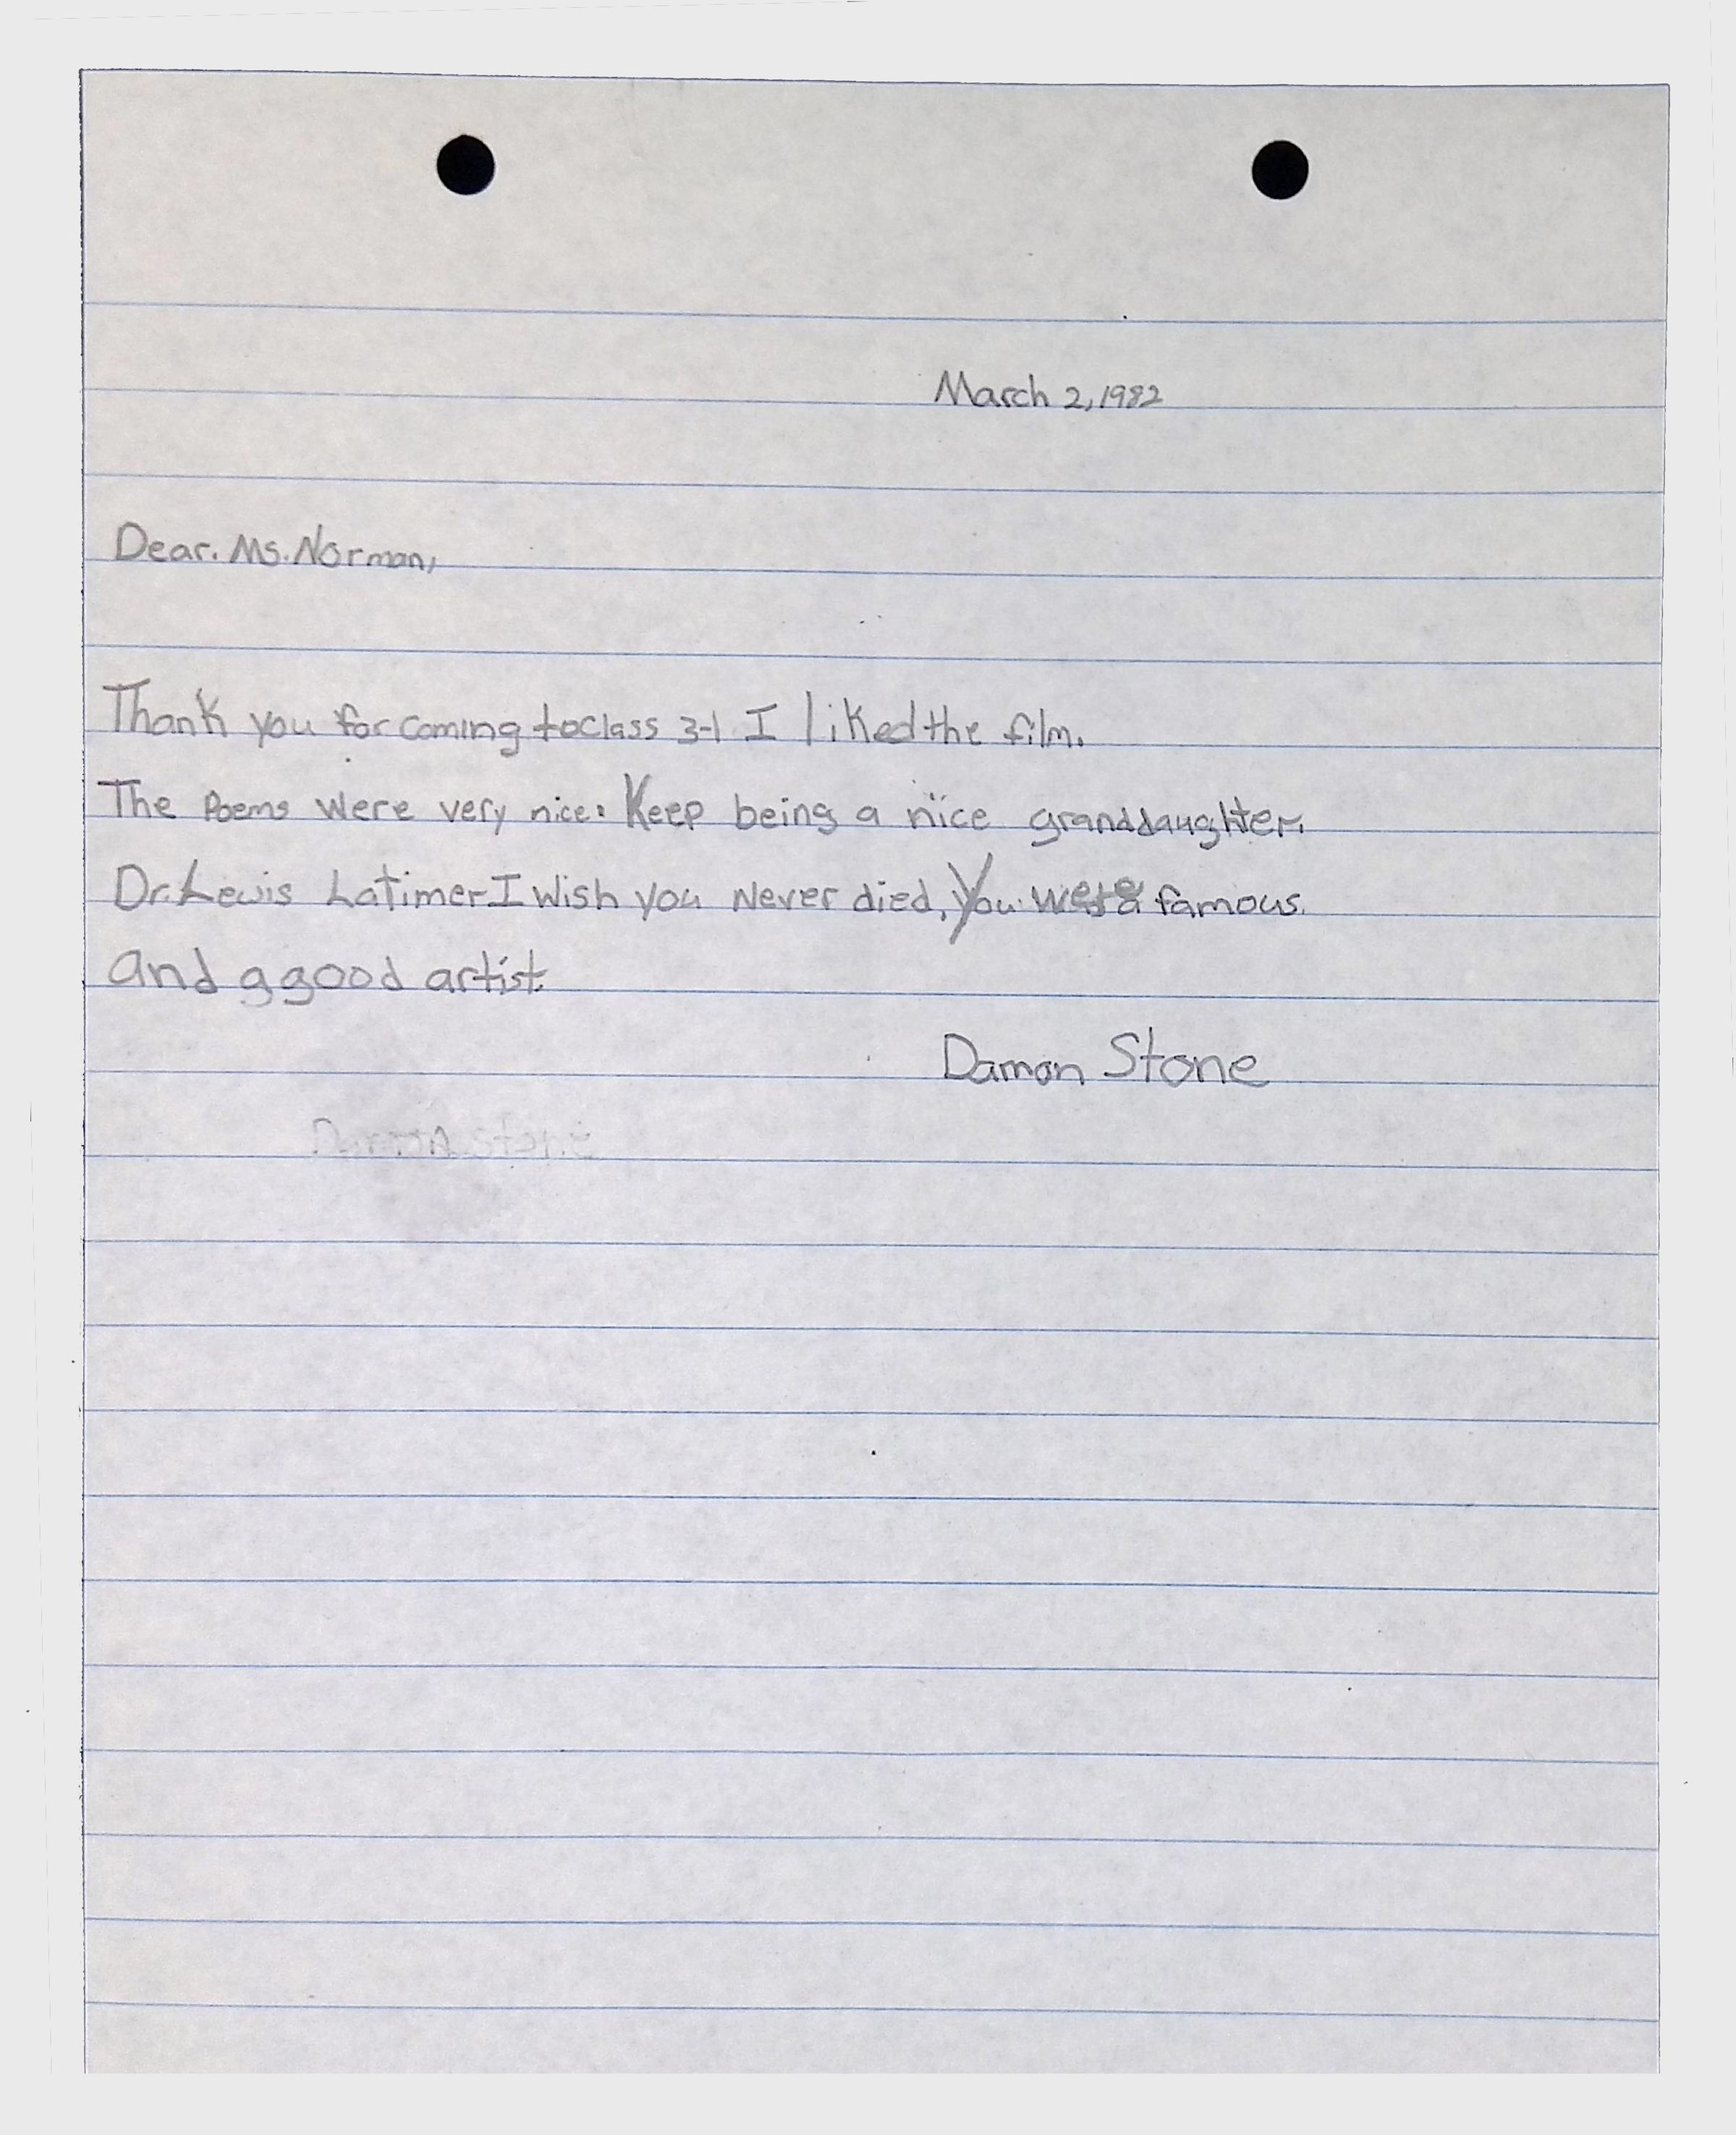 March 2, 1982
Dear. Ms. Norman,
Thank you for coming to class 3-1 I liked the film.
The Poems were very nice. Keep being a nice granddaughter.
Dr. Lewis Latimer I wish you Never died. You were a famous
and a good artist.
Damon Stone
Damon Stone